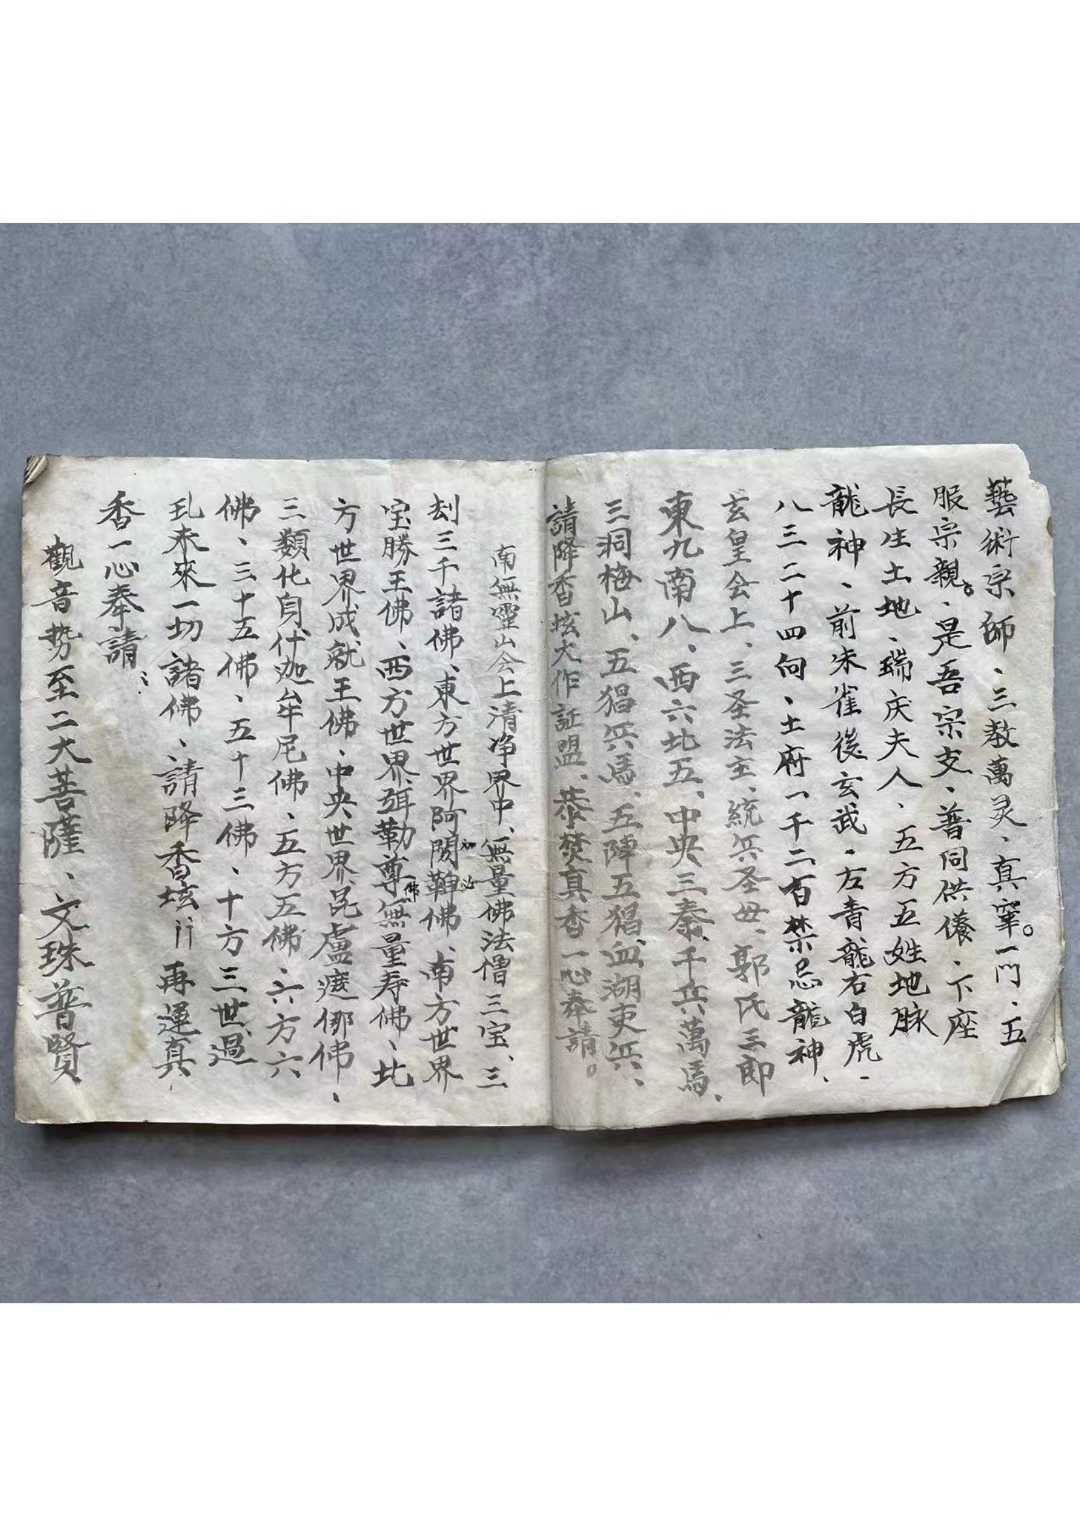 藝術宗師、三教萬灵、真宰。一門、五
服宗親。、是吾宗支、普同供儀、下座
長生土地、瑞庆夫人、五方五姓地脉
龍神、前朱雀後玄武、左青龍右白虎、
八三二十四向、土府一千二百禁忌龍神、
玄皇会上、三圣法主、統兵圣母、郭氏三郎
東九南八、西六北五、中央三秦、千兵萬馬、
三洞梅山、五猖兵馬、五陣五猖、血湖吏兵、
請降香坛大作証盟、恭焚真香一心奉請。
南無靈山会上清净界中、無量佛法僧三宝、三
刼三千諸佛、東方世界阿閦鞞佛、南方世界
宝勝王佛、西方世界弥勒尊佛無量寿佛、北
方世界成就王佛、中央世界昆盧遮㑚佛、
三類化自什迦牟尼佛、五方五佛、六方六
佛、三十五佛、五十三佛、十方三世、過
現未來一切諸佛、請降香坛 再運真
香一心奉請、
觀音势至二大菩薩、文珠普賢